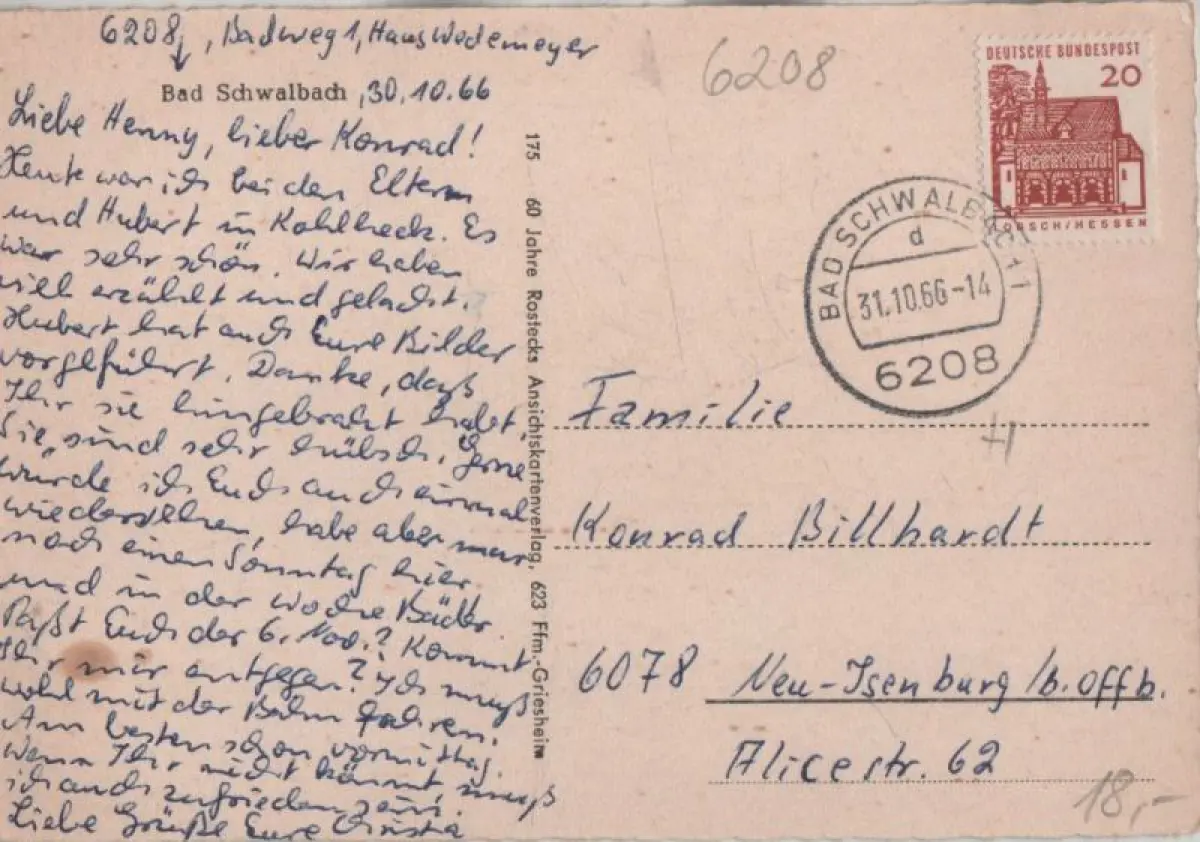 6208, Badweg 1, Haus Wedemeyer
Bad Schwalbach, 30.10.66
Liebe Henny, lieber Konrad!
Heute war ich bei den Eltern
und Hubert in Kohlheck. Es
war sehr schön. Wir haben
viel erzählt und gelacht.
Hubert hat auch Eure Bilder
vorgeführt. Danke, daß
Ihr sie hingebracht habt.
Sie sind sehr hübsch. Gerne
würde ich Euch auch einmal
wiedersehen, habe aber nur
noch einen Sonntag hier
und in der Woche Bäder.
Paßt Euch der 6. Nov.? Kommt
Ihr mir entgegen? Ich muß
wohl mit der Bahn fahren.
Am besten schon vormittag.
Wenn Ihr nicht könnt, muß
ich auch zufrieden sein.
Liebe Grüße Eure Christa
175 60 Jahre Rostecks Ansichtskartenverlag, 623 Ffm.-Griesheim
6208
DEUTSCHE BUNDESPOST
20
LORSCH/HESSEN
BAD SCHWALBACH 1
d
31.10.66-14
6208
Familie
Konrad Billhardt
6078 Neu-Isenburg/b. Offb.
Alicestr. 62
18,-